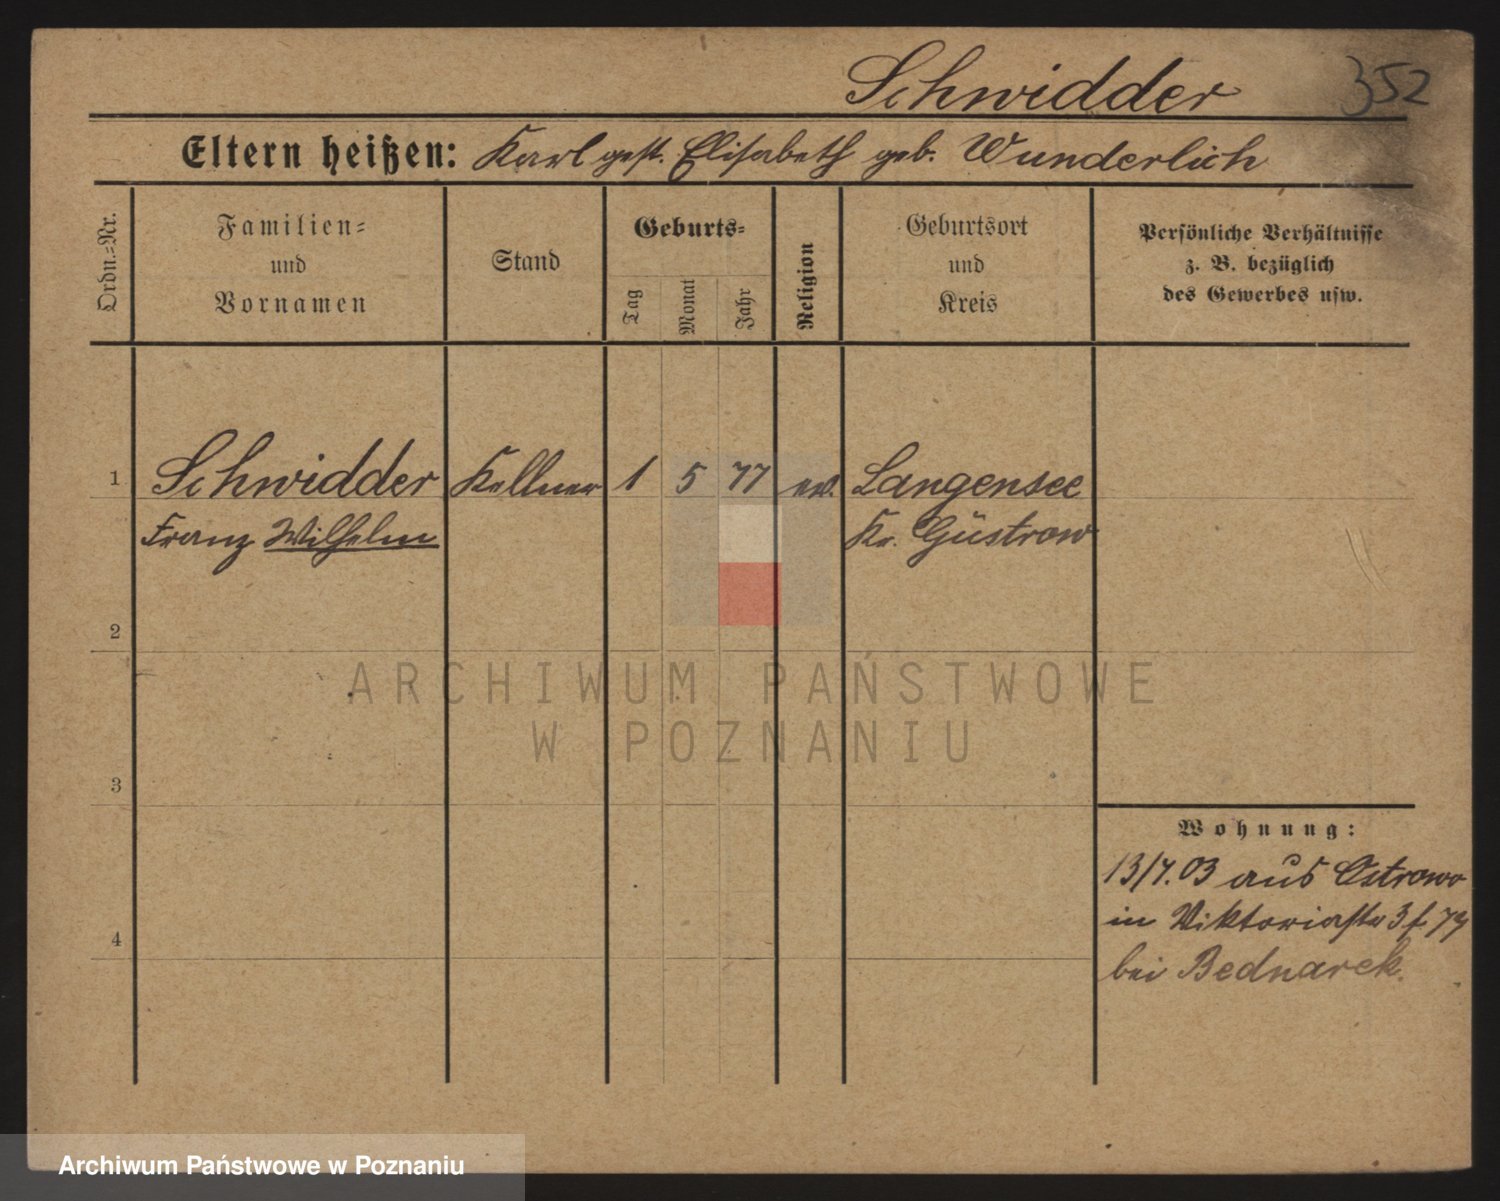 Schwidder 352
Eltern heißen: Karl gest. Elisabeth geb. Wunderlich
Ordn.-Nr.
Familien-
und
Vornamen
Stand
Geburts-
Tag
Monat
Jahr
Religion
Geburtsort
und
Kreis
Persönliche Verhältnisse
z. B. bezüglich
des Gewerbes usw.
1 Schwidder Kellner 1 5 77 ev. Langensee
Franz Wilhelm Kr. Güstrow
2
ARCHIWUM PAŃSTWOWE
W POZNANIU
3
Wohnung:
13/7.03 aus Ostrowo
in Viktoriastr 3
4
bei Bednarek.
Archiwum Państwowe w Poznaniu